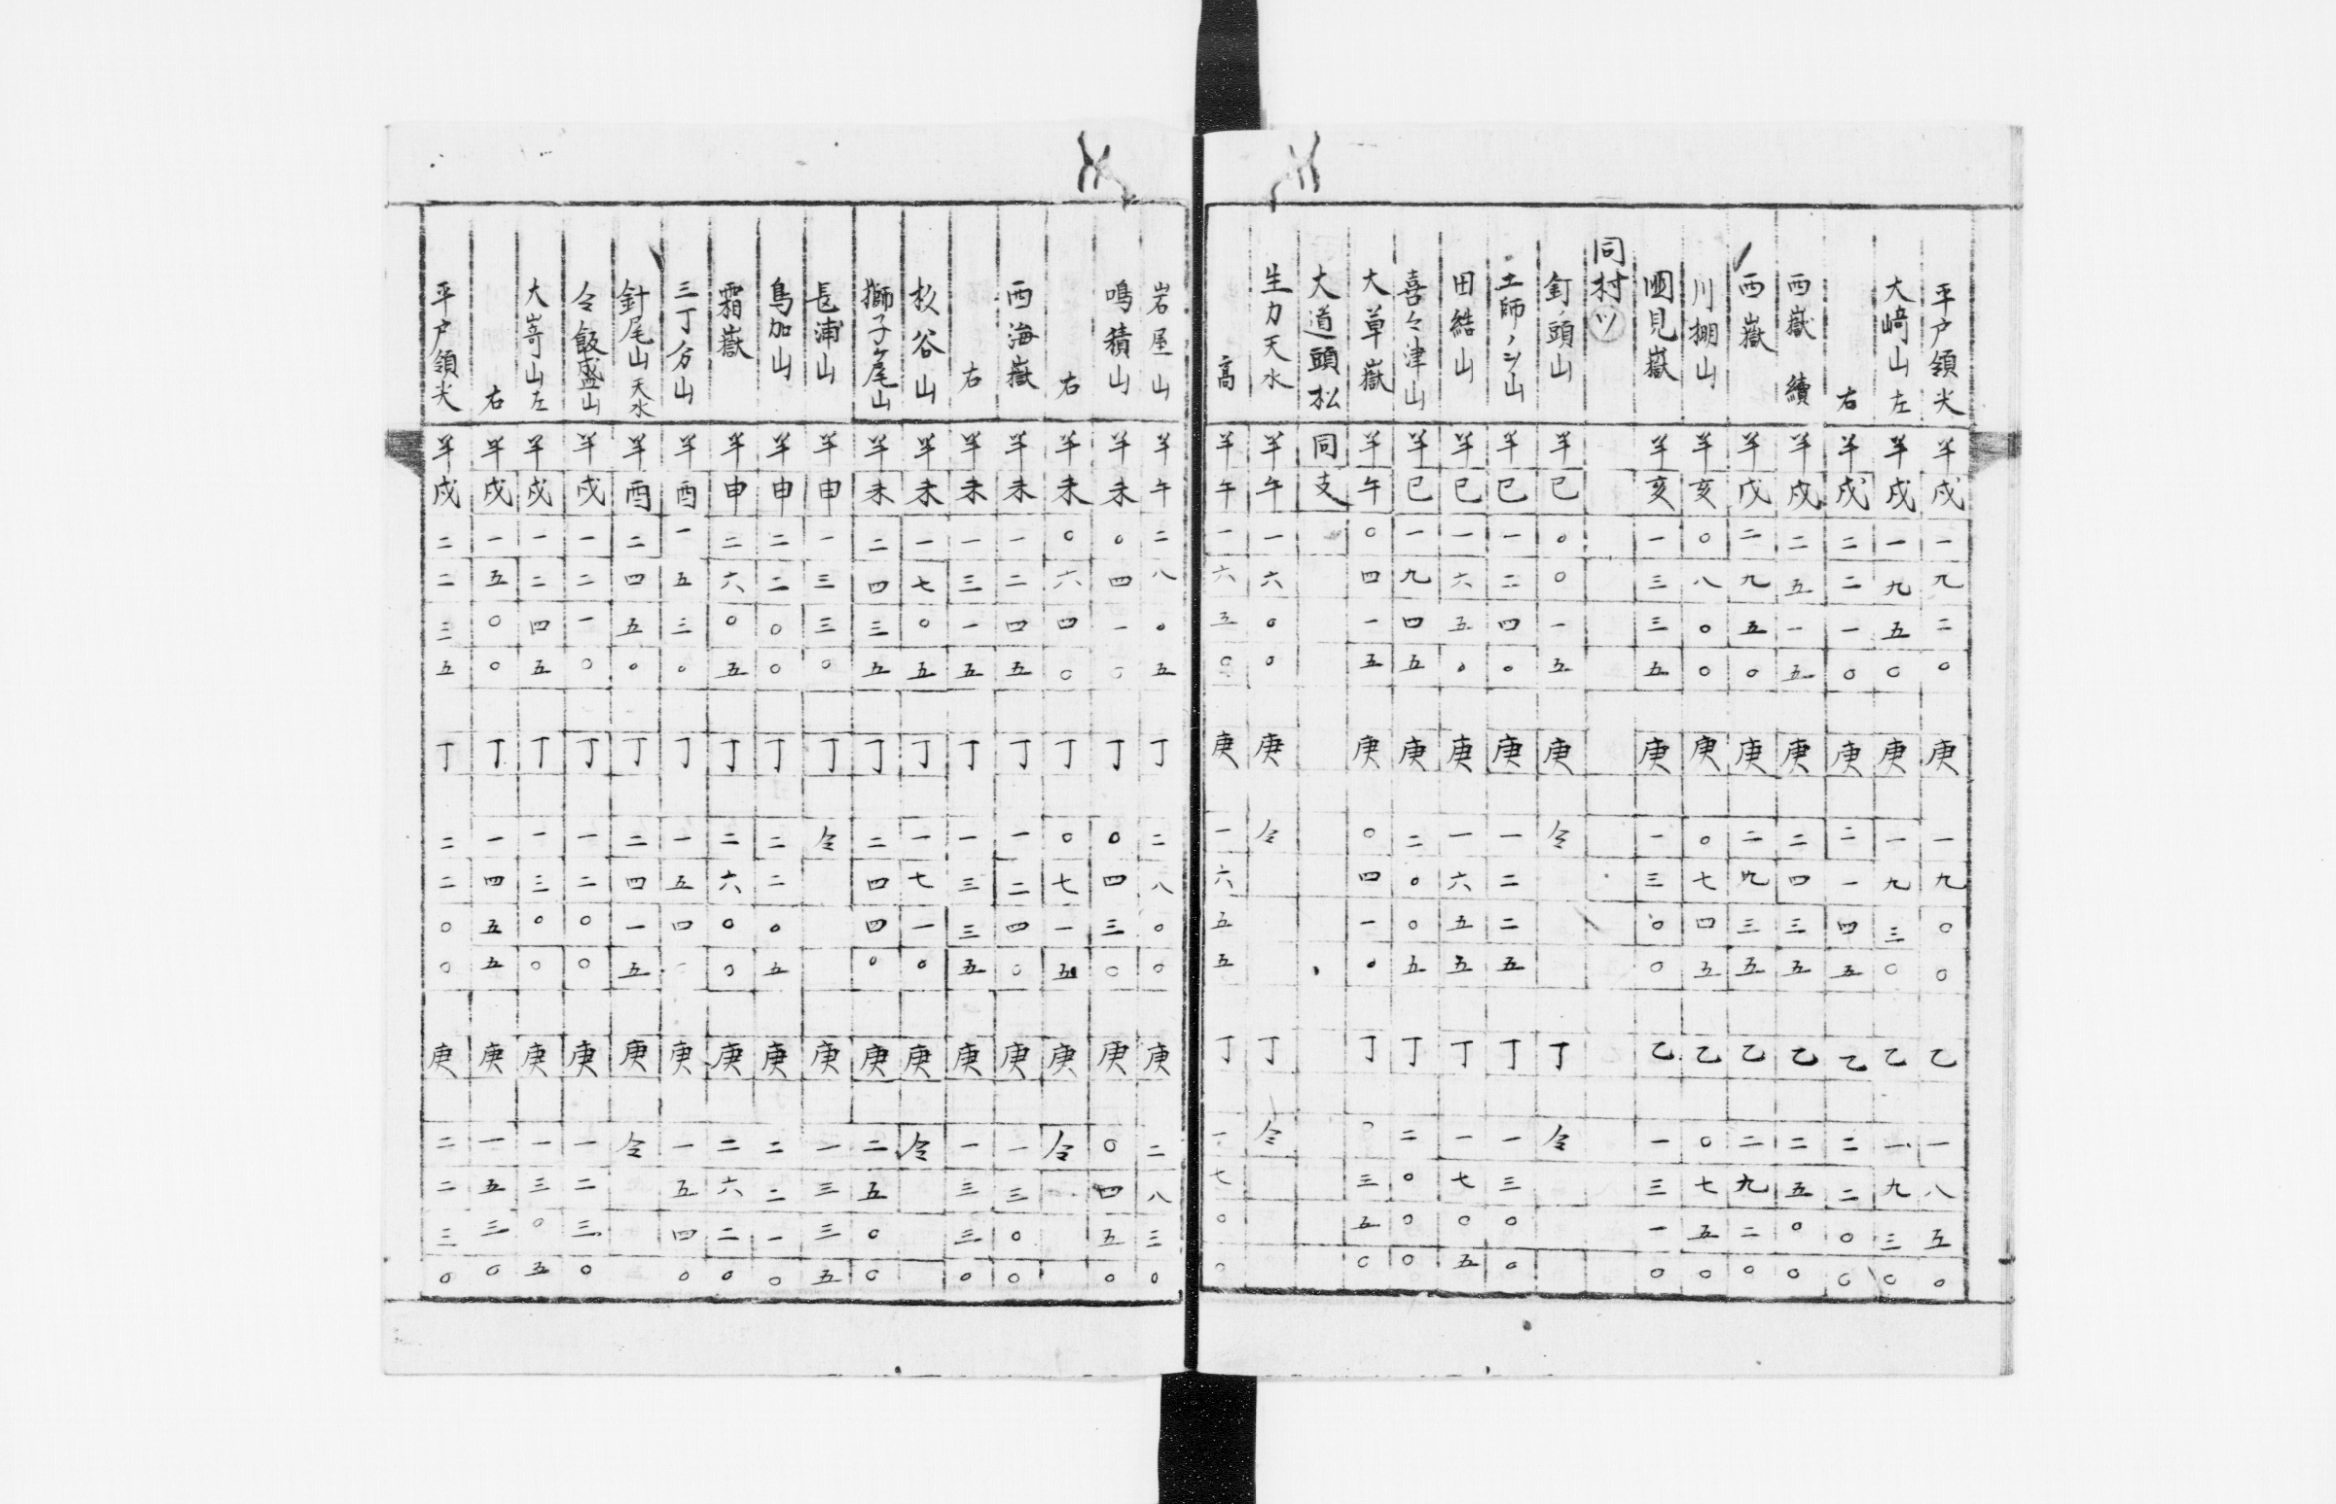 平戸領尖 半 戌 一九二〇 庚 一九〇〇 乙 一八五〇
大崎山左 半 戌 一九五〇 庚 一九三〇 乙 一九三〇
右 半 戌 二二一〇 庚 二一四五 乙 二二〇〇
西嶽續 半 戌 二五一五 庚 二四三五 乙 二五〇〇
西嶽 半 戌 二九五〇 庚 二九三五 乙 二九二〇
川棚山 半 亥 〇八〇〇 庚 〇七四五 乙 〇七五〇
國見嶽 半 亥 一三三五 庚 一三〇〇 乙 一三一〇
同村ツ
釘ノ頭山 半 巳 〇〇一五 庚 仝 丁 仝
土師ノシ山 半 巳 一二四〇 庚 一二二五 丁 一三〇〇
田結山 半 巳 一六五〇 庚 一六五五 丁 一七〇五
喜々津山 半 巳 一九四五 庚 二〇〇五 丁 二〇〇〇
大草嶽 半 午 〇四一五 庚 〇四一〇 丁 〇三五〇
大道頭松 同 支
生力天水 半 午 一六〇〇 庚 仝 丁 仝
高 半 午 一六五〇 庚 一六五五 丁 一七〇〇
岩屋山 半 午 二八〇五 丁 二八〇〇 庚 二八三〇
鳴積山 半 未 〇四一〇 丁 〇四三〇 庚 〇四五〇
右 半 未 〇六四〇 丁 〇七一五 庚 仝
西海嶽 半 未 一二四五 丁 一二四〇 庚 一三〇〇
右 半 未 一三一五 丁 一三三五 庚 一三三〇
杦谷山 半 未 一七〇五 丁 一七一〇 庚 仝
獅子ヶ尾山 半 未 二四三五 丁 二四四〇 庚 二五〇〇
長浦山 半 申 一三三〇 丁 仝 庚 一三三五
鳥加山 半 申 二二〇〇 丁 二二〇五 庚 二二一〇
霜嶽 半 申 二六〇五 丁 二六〇〇 庚 二六二〇
三丁分山 半 酉 一五三〇 丁 一五四〇 庚 一五四〇
針尾山天水 半 酉 二四五〇 丁 二四一五 庚 仝
仝飯盛山 半 戌 一二一〇 丁 一二〇〇 庚 一二三〇
大嵜山左 半 戌 一二四五 丁 一三〇〇 庚 一三〇五
右 半 戌 一五〇〇 丁 一四五五 庚 一五三〇
平戸領尖 半 戌 二二三五 丁 二二〇〇 庚 二二三〇